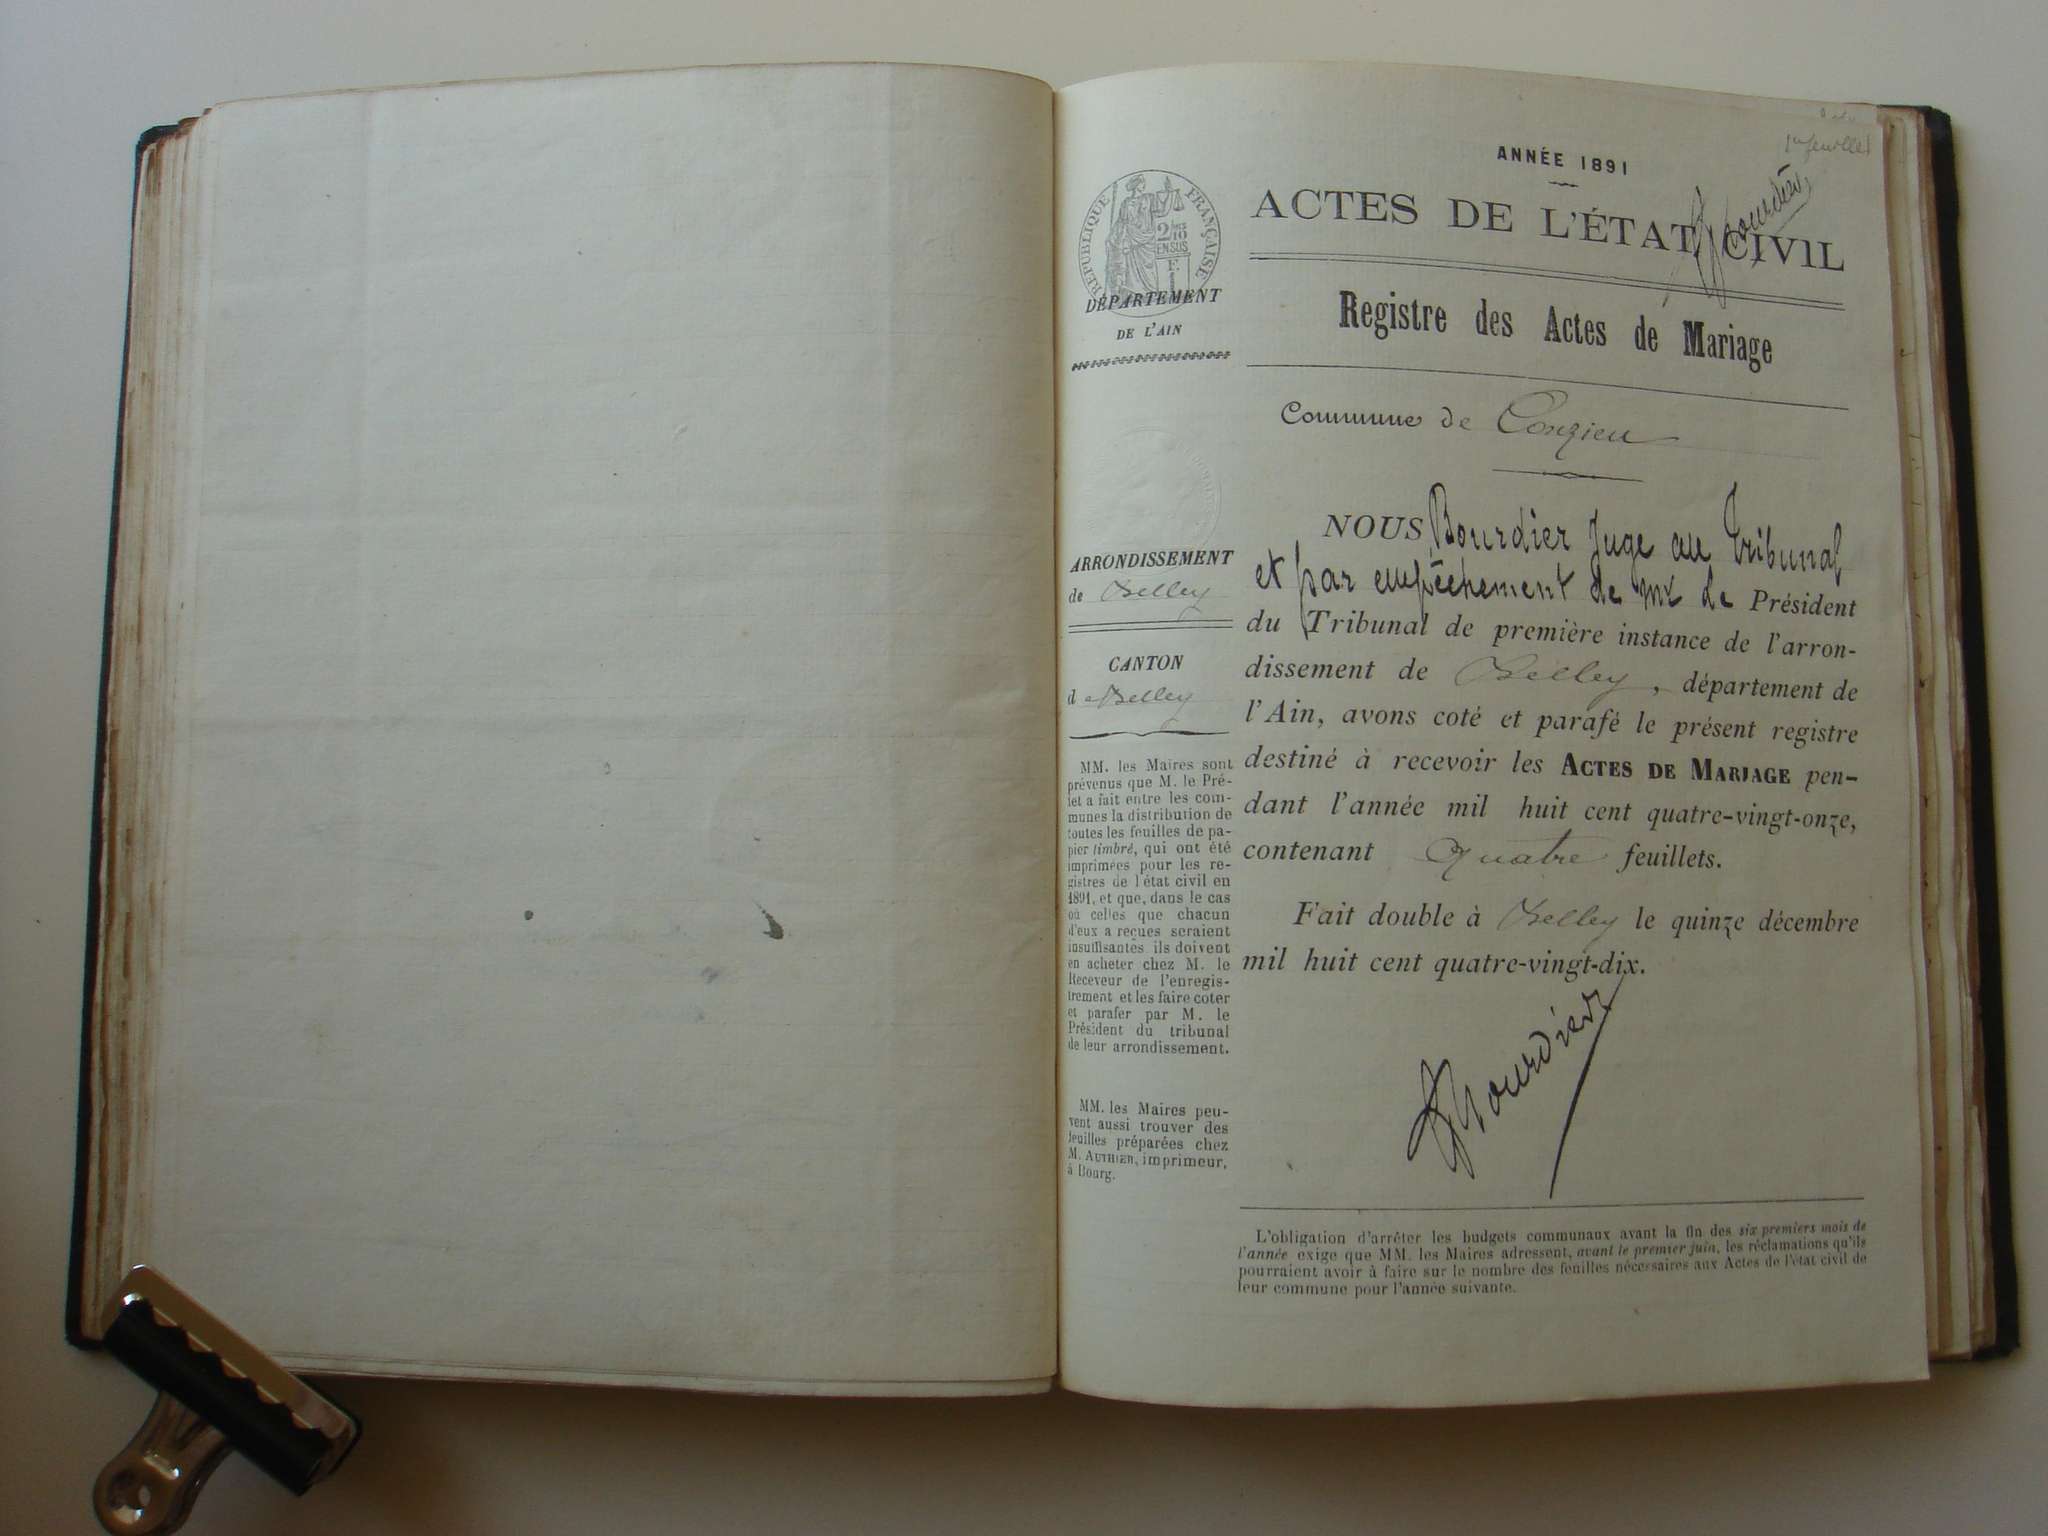 1er feuillet
Bourdier
ANNÉE 1891
ACTES DE L'ÉTAT CIVIL
Registre des Actes de Mariage
Commune de Conzieu
RÉPUBLIQUE FRANÇAISE
2/10 EN SUS
DÉPARTEMENT
DE L'AIN
ARRONDISSEMENT
de Belley
CANTON
d e Belley
MM. les Maires sont
prévenus que M. le Pré-
fet a fait entre les com-
munes la distribution de
toutes les feuilles de pa-
pier timbré, qui ont été
imprimées pour les re-
gistres de l'état civil en
1891, et que, dans le cas
où celles que chacun
d'eux a reçues seraient
insuffisantes ils doivent
en acheter chez M. le
Receveur de l'enregis-
trement et les faire coter
et parafer par M. le
Président du tribunal
de leur arrondissement.
MM. les Maires peu-
vent aussi trouver des
feuilles préparées chez
M. AUTHIER, imprimeur,
à Bourg.
NOUS Bourdier Juge au Tribunal
et par empêchement de Mr le Président
du Tribunal de première instance de l'arron-
dissement de Belley, département de
l'Ain, avons coté et parafé le présent registre
destiné à recevoir les ACTES DE MARIAGE pen-
dant l'année mil huit cent quatre-vingt-onze,
contenant Quatre feuillets.
Fait double à Belley le quinze décembre
mil huit cent quatre-vingt-dix.
Bourdier
L'obligation d'arrêter les budgets communaux avant la fin des six premiers mois de
l'année exige que MM. les Maires adressent, avant le premier juin, les réclamations qu'ils
pourraient avoir à faire sur le nombre des feuilles nécessaires aux Actes de l'état civil de
leur commune pour l'année suivante.